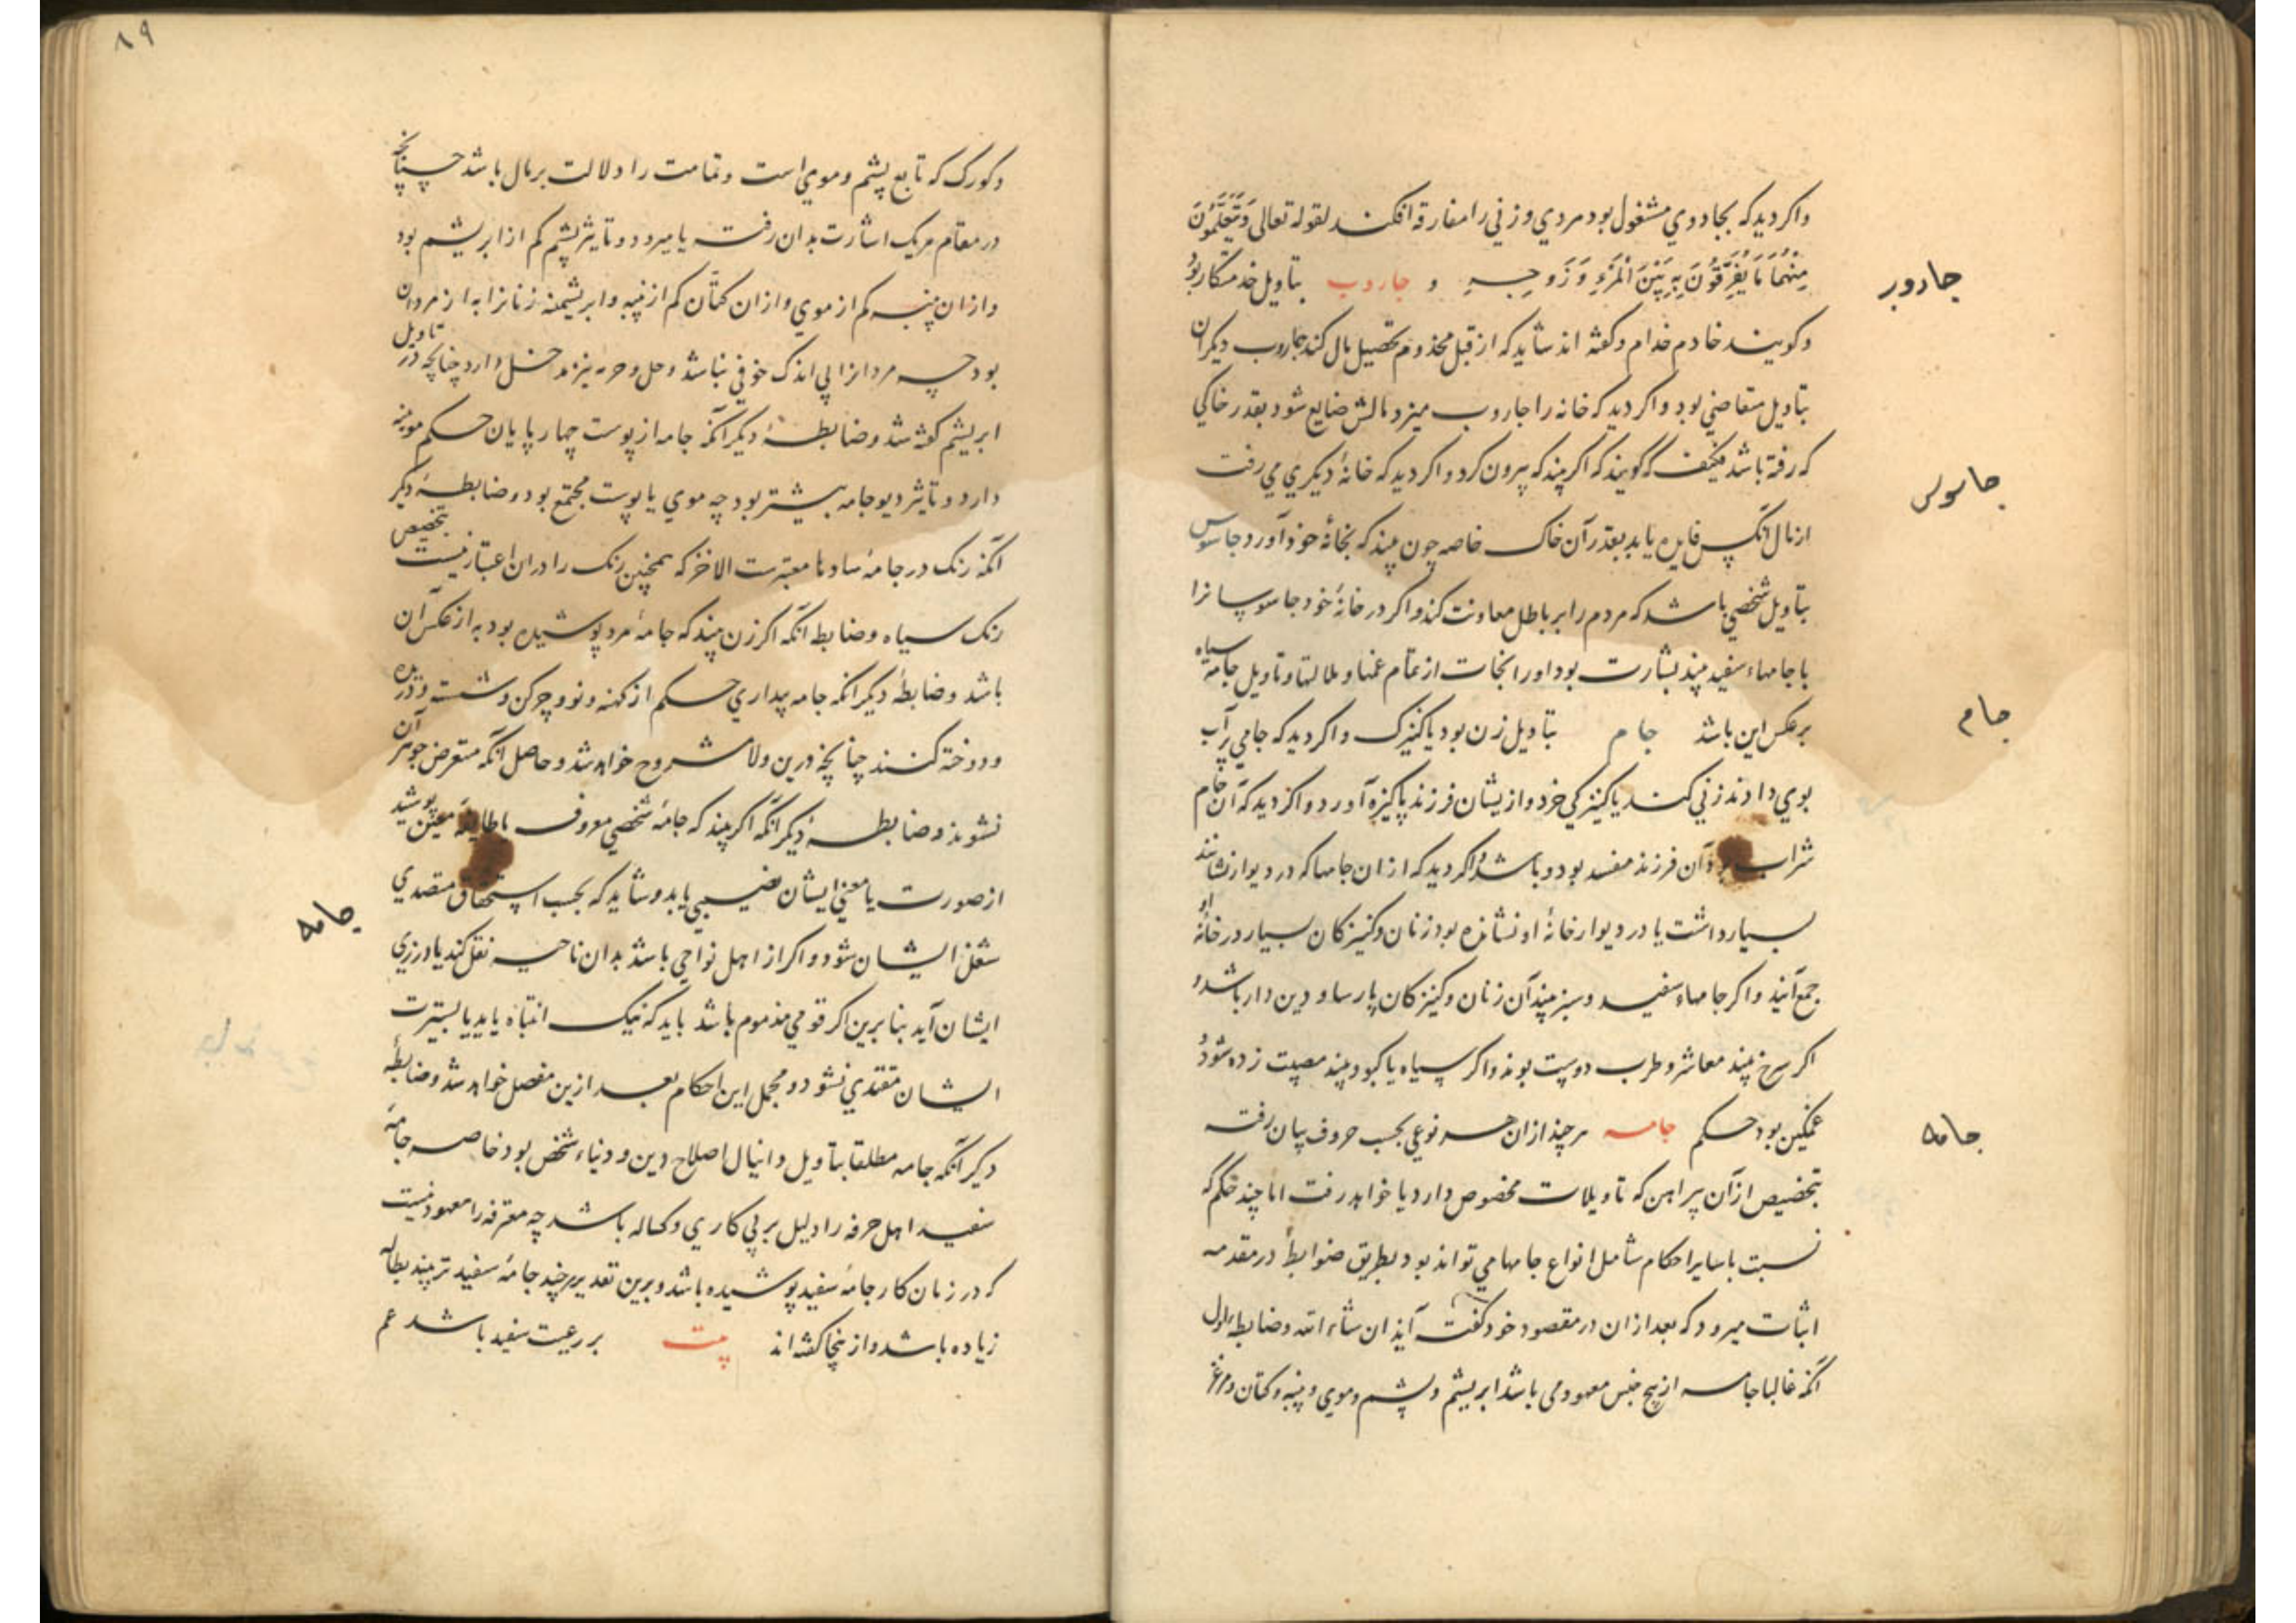 واکر دیدکه بجادویی مشغول بود مردی وزنی را مفارقه افکند لقوله تعالی وَیَتَعَلَّمُونَ
مِنْهُمَا مَا یُفَرِّقُونَ بِهِ بَیْنَ الْمَرْءِ وَزَوْجِهِ و جاروب بتاویل خدمتکار بود
جادوبر
وکویند خادم خدام وکفته اند شاید که از قبل مخدوم تحصیل مال کند جاروب دیکران
بتاویل متقاضی بود واکر دید که خانه را جاروب میزد مالش ضایع شود بقدر خاکی
که رفته باشد کویند که اکر بیند که بیرون کرد واکر دید که خانهٔ دیکری می رفت
جاسوس
ازمال آنکس فایده یابد بقدر آن خاک خاصه چون بیند که بخانهٔ خود آورد جاسوس
بتاویل شخصی باشد که مردم را بر باطل معاونت کند واکر در خانهٔ خود جاسوسانرا
با جامهاء سفید بیند بشارت بود اورا نجات از تمام غمها وملالتها وتاویل جامه سیاه
جام
برعکس این باشد جام بتاویل زن بود یا کنیزک واکر دید که جامی پرآب
بوی دادند زنی کند یا کنیزکی خرد وازیشان فرزند پاکیزه آورد واکر دید که آن جام
شراب بود آن فرزند مفسد بود وباشد واکر دید که ازان جامها که در دیوار نشانند
بسیار داشت یا در دیوار خانهٔ او نشانده بود زنان وکنیزکان بسیار در خانهٔ او
جمع آیند واکر جامهاء سفید وسبز بیند آن زنان وکنیزکان پارسا ودین دار باشد و
اکر سرخ بیند معاشر وطرب دوست بوند واکر سیاه یا کبود بیند مصیبت زده شود و
جامه
غمکین بود حکم جامه هرچند ازان هر نوعی بحسب حروف بیان رفته
بتخصیص از آن پیراهن که تاویلات مخصوص دارد یا خواهد رفت اما چند حکم که
نسبت باسایر احکام شامل انواع جامها می تواند بود بطریق ضوابط در مقدمه
اثبات میرود که بعد ازان در مقصود خود کفته آید ان شاء الله وضابطهٔ اول
آنکه غالبا جامه از پنج جنس معهود می باشد ابریشم وپشم وموی وپنبه وکتان ومرغز
٨٩
وکورک که تابع پشم وموی است وتمامت را دلالت بر مال باشد چنانچه
در مقام هریک اشارت بدان رفت یا میرود وتاثیر پشم کم از ابریشم بود
وازان پنبه کم از موی وازان کتان کم از پنبه وابریشمینه زنانرا به از مردان
بود چه مردانرا بی اندک خوفی نباشد وحل وحرمه نیز مدخل دارد چنانچه در تاویل
ابریشم کفته شد وضابطهٔ دیکر آنکه جامه از پوست چهارپایان حکم موینه
دارد وتاثیر دیوجامه بیشتر بود چه موی با پوست مجتمع بود وضابطهٔ دیکر
آنکه رنک در جامهٔ سادها معتبرست الا خز که همچنین رنک را دران اعتبار نیست بتخصیص
رنک سیاه وضابطه آنکه اکر زن بیند که جامهٔ مرد پوشیده بود به از عکس آن
باشد وضابطهٔ دیکر آنکه جامه بیداری حکم از کهنه ونو وچرکن وشسته ودریده
ودوخته کنند چنانچه درین ولا مشروح خواهد شد وحاصل آنکه متعرض جوهر آن
نشوند وضابطهٔ دیکر آنکه اکر بیند که جامهٔ شخصی معروف یا طایفهٔ معین پوشید
جامه
از صورت یا معنی ایشان نصیبی یابد وشاید که بحسب استحقاق متصدی
شغل ایشان شود واکر از اهل نواحی باشد بدان ناحیه نقل کند یا درزی
ایشان آید بنابرین اکر قومی مذموم باشد باید که نیک انتباه یابد یا بسیرت
ایشان مقتدی نشود ومجمل این احکام بعد ازین مفصل خواهد شد وضابطهٔ
دیکر آنکه جامه مطلقا بتاویل دانیال اصلاح دین ودنیاء شخص بود خاصه جامهٔ
سفید اهل حرفه را دلیل بر بی کاری وکساله باشد چه محترفه را معهود نیست
که در زمان کار جامهٔ سفید پوشیده باشد وبرین تقدیر هرچند جامهٔ سفید تر بیند بطاله
زیاده باشد وازینجا کفته اند بیت بر رعیت سفید باشد غم